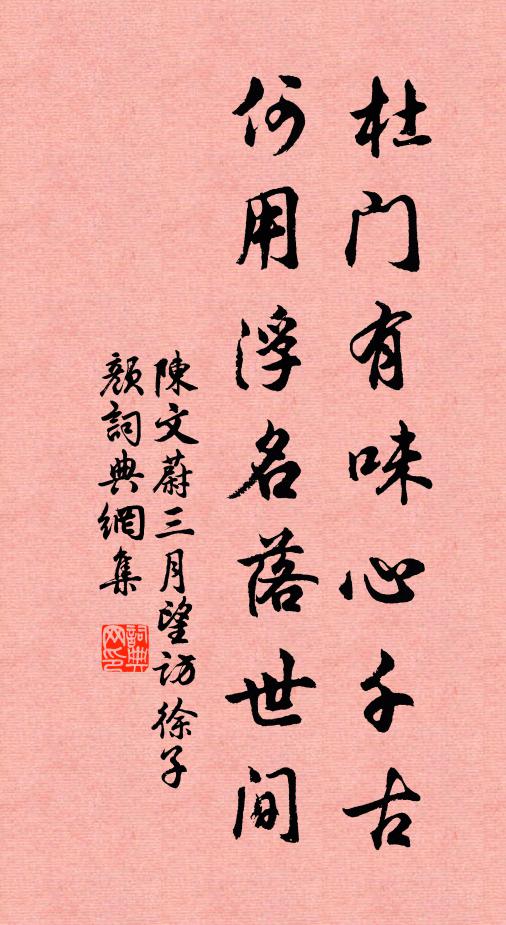 杜门有味心千古
何用浮名落世间
陳文蔚三月望访徐子
顏詞典網集
詞典
网印